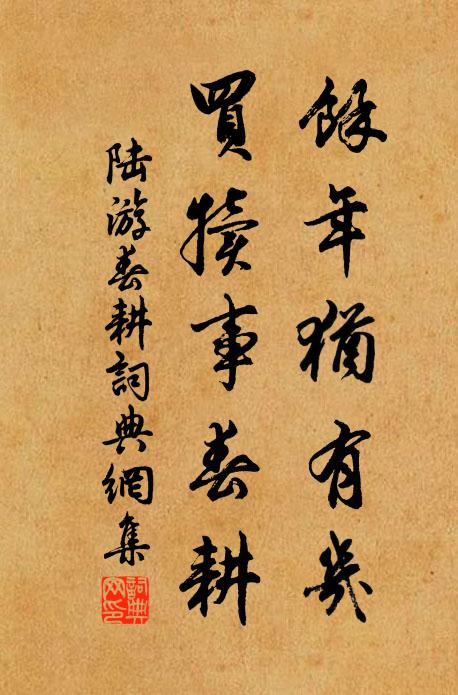 餘年猶有幾
買犢事春耕
陸游春耕詞典網集
詞典網印